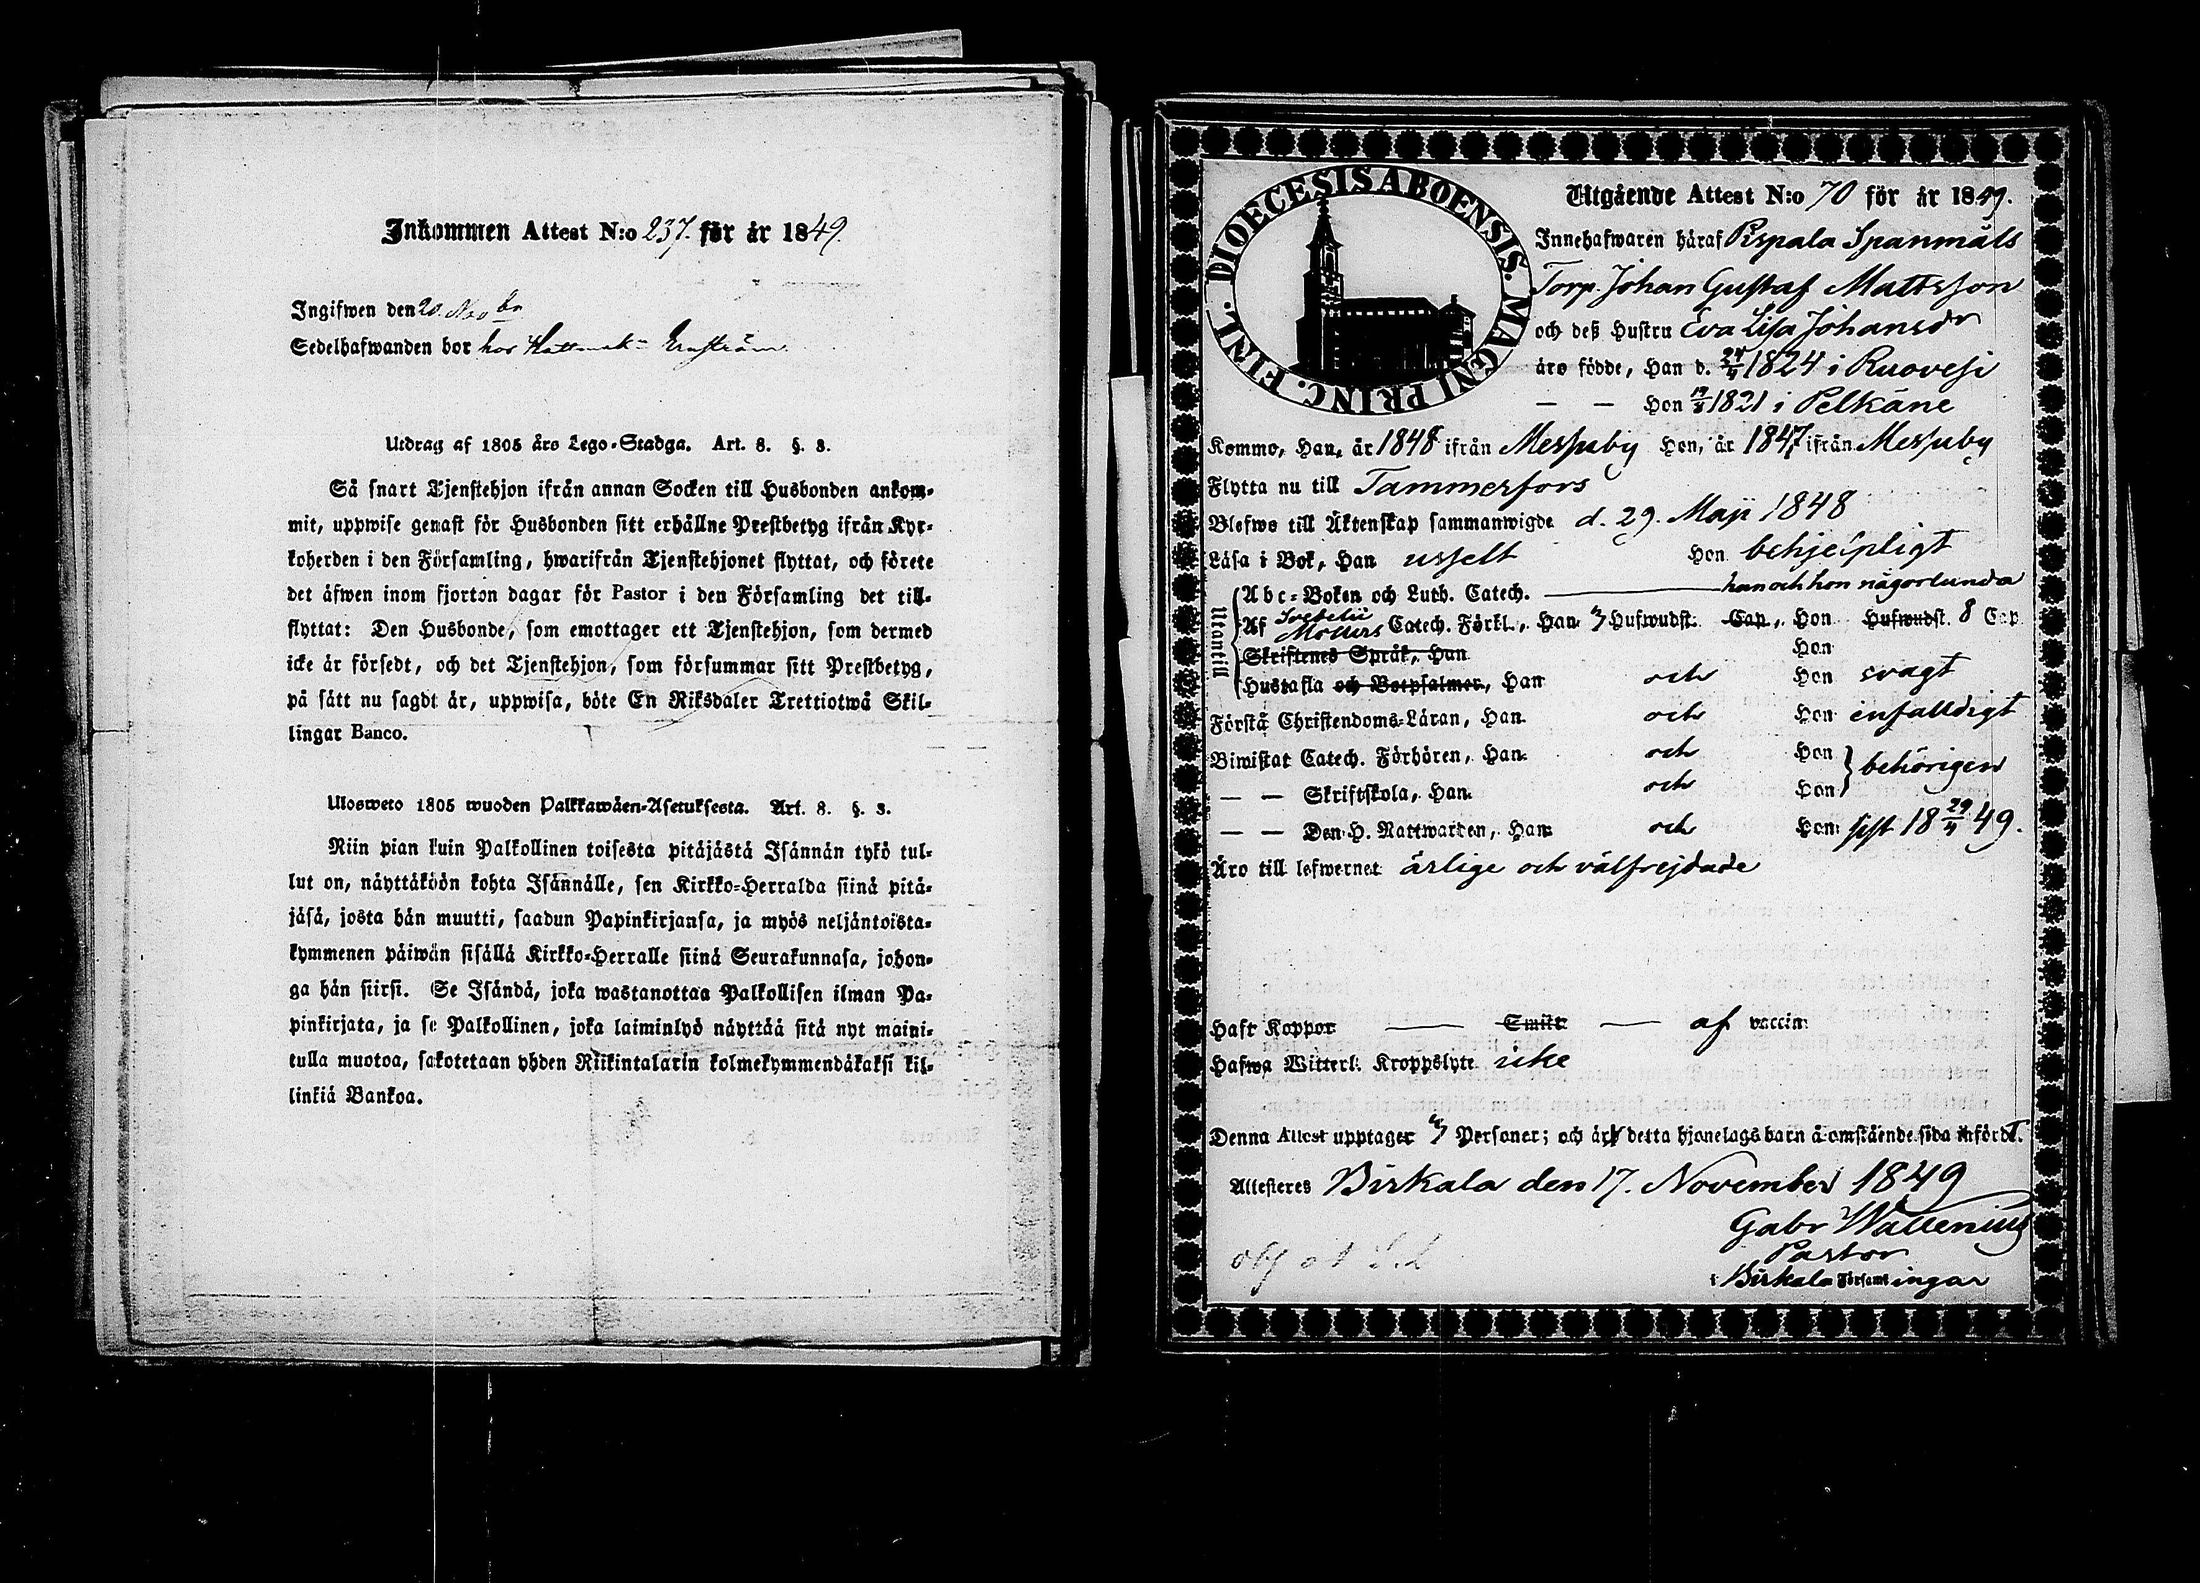 Inkommen Attest N:o 237. för år 1849.
Ingifwen den 20. Novbr
Sedelhafwanden bor hos
Utdrag af 1805 års Lego-Stadga. Art. 8. §. 3.
Så snart Tjenstehjon ifrån annan Socken till Husbonden ankom-
mit, uppwise genast för Husbonden sitt erhållne Prestbetyg ifrån Kyr-
koherden i den Församling, hwarifrån Tjenstehjonet flyttat, och förete
det äfwen inom fjorton dagar för Pastor i den Församling det till-
flyttat: Den Husbonde, som emottager ett Tjenstehjon, som dermed
icke är försedt, och det Tjenstehjon, som försummar sitt Prestbetyg,
på sätt nu sagdt är, uppwisa, böte En Riksdaler Trettiotwå Skil-
lingar Banco.
Ulosweto 1805 wuoden Palkkawäen-Asetuksesta. Art. 8. §. 3.
Niin pian kuin Palkollinen toisesta pitäjästä Isännän tykö tul-
lut on, näyttäköön kohta Isännälle, sen Kirkko-Herralda siinä pitä-
jäsä, josta hän muutti, saadun Papinkirjansa, ja myös neljäntoista-
kymmenen päiwän sisällä Kirkko-Herralle siinä Seurakunnasa, johon-
ga hän siirsi. Se Isändä, joka wastanottaa Palkollisen ilman Pa-
pinkirjata, ja se Palkollinen, joka laiminlyö näyttää sitä nyt maini-
tulla muotoa, sakotetaan yhden Riikintalarin kolmekymmendäkaksi kil-
linkiä Bankoa.
DIOECESIS ABOENSIS. MAGNI PRINC. FINL.
Utgående Attest N:o 70 för år 1849.
Innehafwaren häraf Pispala Spanmåls
Torp. Johan Gustaf Mattsson
och deß Hustru Eva Lisa Johansdr
äro födde, Han d. 24/4 1824 i Ruovesi
— — Hon 19/8 1821 i Pelkäne
Kommo, Han, år 1848 ifrån Messuby Hon, år 1847 ifrån Messuby
Flytta nu till Tammerfors
Blefwo till Äktenskap sammanwigde d. 29. Maji 1848
Läsa i Bok, Han usselt Hon behjelpligt
Utantill
Abc-Boken och Luth. Catech. — han och hon någorlunda
Af Svebelii Möllers Catech. Förkl., Han 4 Hufwudst. Cap., Hon Hufwudst. 8 Cap
Skriftenes Språk, Han Hon
Hustafla och Botpsalmer, Han och Hon svagt
Förstå Christendoms-Läran, Han och Hon enfalldigt
Biwistat Catech. Förhören, Han och Hon behörigen
— — Skriftskola, Han och Hon
— — Den H. Nattwarden, Han och Hon sist 18 29/4 49.
Äro till lefwernet ärlige och välfrejdade
Haft Koppor — Smitt — af vaccin
Hafwa Witterl. Kroppslyte icke
Denna Attest upptager 4 Personer; och är detta hjonelags barn å omstående sida infördt.
Attesteres Birkala den 17. November 1849
Gabr Wallenius
Pastor
i Birkala Församlingar